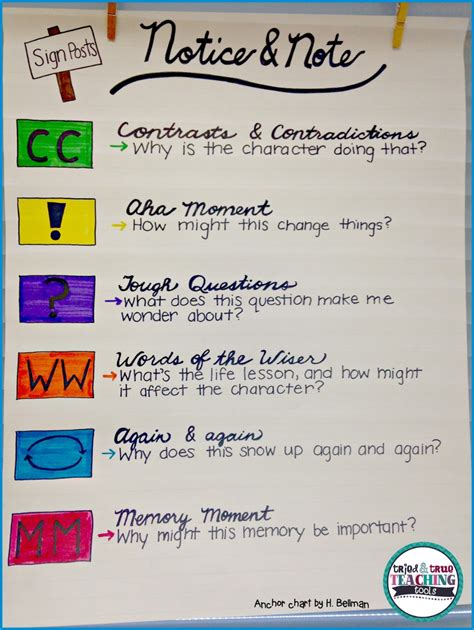 Sign Posts
Notice & Note
CC
Contrasts & Contradictions
→ Why is the character doing that?
!
Aha Moment
→ How might this change things?
?
Tough Questions
→ What does this question make me
wonder about?
WW
Words of the Wiser
→ What's the life lesson, and how might
it affect the character?
Again & again
→ Why does this show up again and again?
MM
Memory Moment
→ Why might this memory be important?
Anchor chart by H. Bellman
tried & true
TEACHING
tools